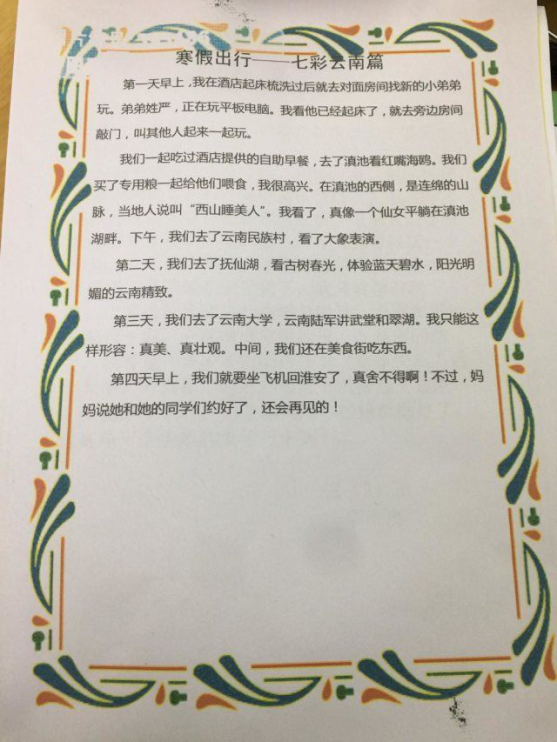 寒假出行——七彩云南篇
第一天早上，我在酒店起床梳洗过后就去对面房间找新的小弟弟
玩。弟弟姓严，正在玩平板电脑。我看他已经起床了，就去旁边房间
敲门，叫其他人起来一起玩。
我们一起吃过酒店提供的自助早餐，去了滇池看红嘴海鸥。我们
买了专用粮一起给他们喂食，我很高兴。在滇池的西侧，是连绵的山
脉，当地人说叫“西山睡美人”。我看了，真像一个仙女平躺在滇池
湖畔。下午，我们去了云南民族村，看了大象表演。
第二天，我们去了抚仙湖，看古树春光，体验蓝天碧水，阳光明
媚的云南精致。
第三天，我们去了云南大学，云南陆军讲武堂和翠湖。我只能这
样形容：真美、真壮观。中间，我们还在美食街吃东西。
第四天早上，我们就要坐飞机回淮安了，真舍不得啊！不过，妈
妈说她和她的同学们约好了，还会再见的！